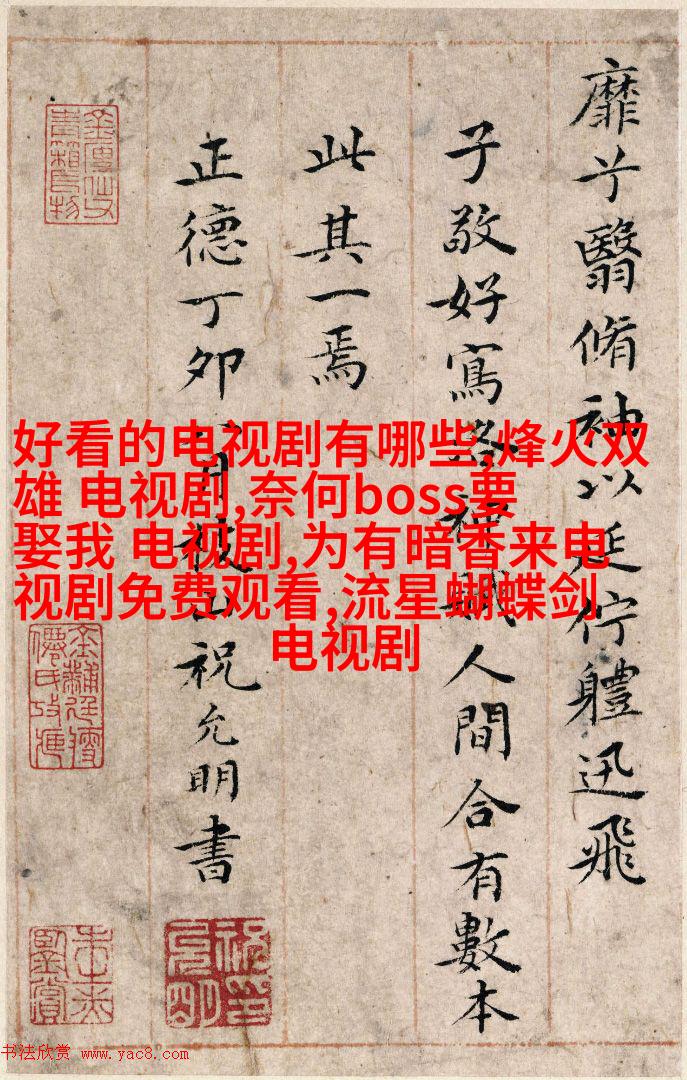 靡兮翳脩袖以延佇體迅飛
子敬好寫洛神賦人間合有數本
此其一焉
正德丁卯月山祝允明書
好看的电视剧有哪些,烽火双
雄 电视剧,奈何boss要
娶我 电视剧,为有暗香来电
视剧免费观看,流星蝴蝶剑
电视剧
书法欣赏 www.yac8.com